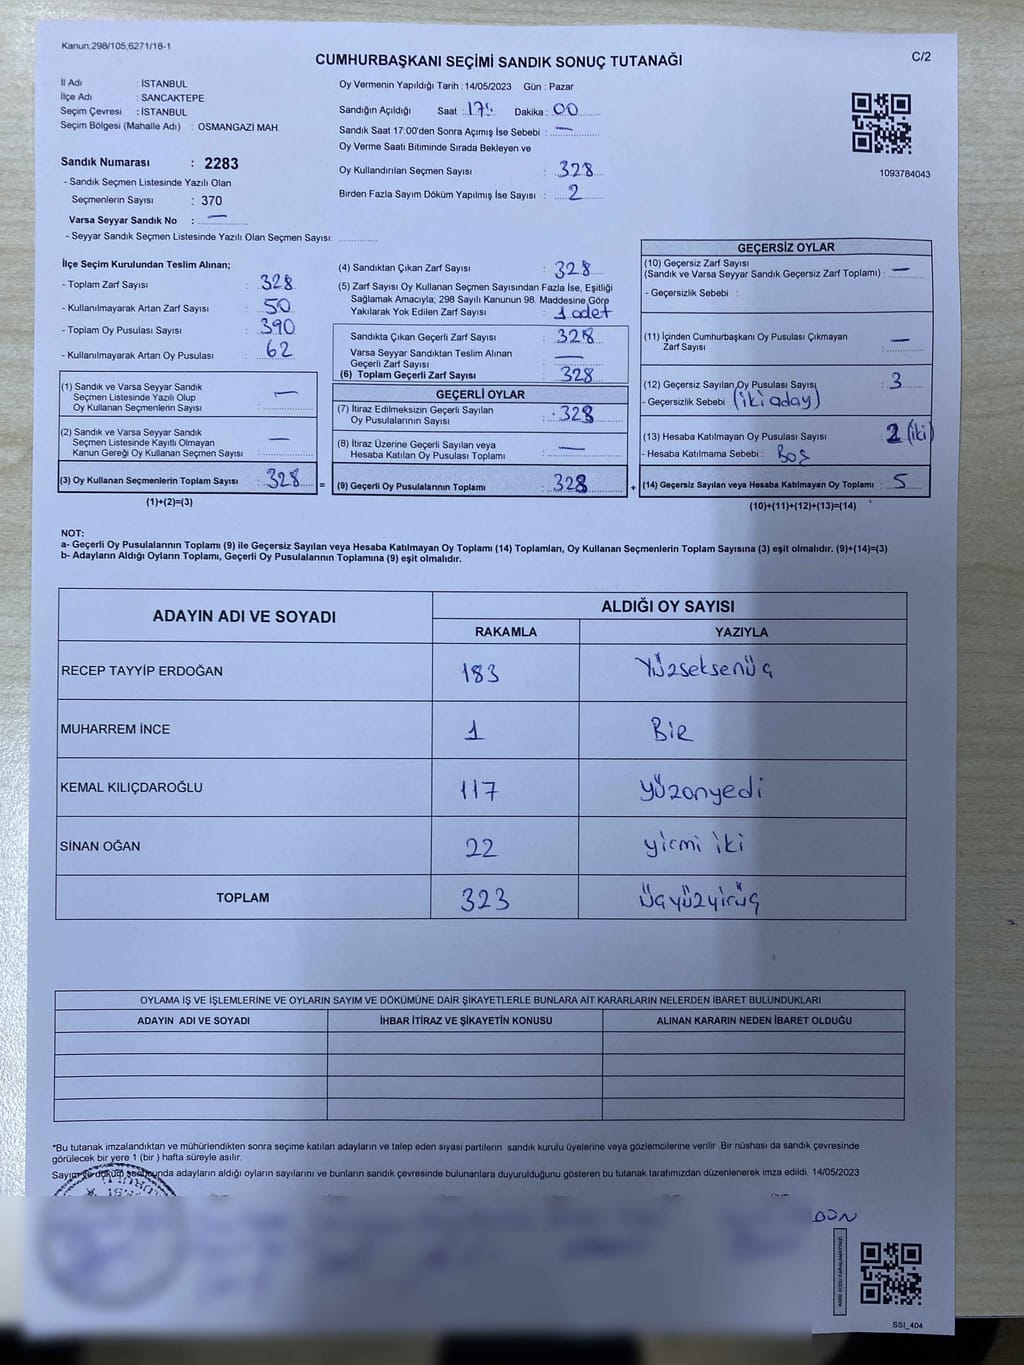 Kanun;298/105;6271/18-1
CUMHURBAŞKANI SEÇİMİ SANDIK SONUÇ TUTANAĞI
C/2
İl Adı : İSTANBUL
İlçe Adı : SANCAKTEPE
Seçim Çevresi : İSTANBUL
Seçim Bölgesi (Mahalle Adı) : OSMANGAZİ MAH.
Sandık Numarası : 2283
- Sandık Seçmen Listesinde Yazılı Olan
Seçmenlerin Sayısı : 370
Varsa Seyyar Sandık No : —
- Seyyar Sandık Seçmen Listesinde Yazılı Olan Seçmen Sayısı:
Oy Vermenin Yapıldığı Tarih : 14/05/2023 Gün : Pazar
Sandığın Açıldığı Saat : 17 Dakika : 00
Sandık Saat 17:00'den Sonra Açımış İse Sebebi : —
Oy Verme Saati Bitiminde Sırada Bekleyen ve
Oy Kullandırılan Seçmen Sayısı : 328
Birden Fazla Sayım Döküm Yapılmış İse Sayısı : 2
1093784043
İlçe Seçim Kurulundan Teslim Alınan;
- Toplam Zarf Sayısı : 328
- Kullanılmayarak Artan Zarf Sayısı : 50
- Toplam Oy Pusulası Sayısı : 390
- Kullanılmayarak Artan Oy Pusulası : 62
(1) Sandık ve Varsa Seyyar Sandık
Seçmen Listesinde Yazılı Olup
Oy Kullanan Seçmenlerin Sayısı : —
(2) Sandık ve Varsa Seyyar Sandık
Seçmen Listesinde Kayıtlı Olmayan
Kanun Gereği Oy Kullanan Seçmen Sayısı : —
(3) Oy Kullanan Seçmenlerin Toplam Sayısı : 328 =
(1)+(2)=(3)
(4) Sandıktan Çıkan Zarf Sayısı : 328
(5) Zarf Sayısı Oy Kullanan Seçmen Sayısından Fazla İse, Eşitliği
Sağlamak Amacıyla, 298 Sayılı Kanunun 98. Maddesine Görp
Yakılarak Yok Edilen Zarf Sayısı : 1 adet
Sandıkta Çıkan Geçerli Zarf Sayısı : 328
Varsa Seyyar Sandıktan Teslim Alınan
Geçerli Zarf Sayısı : —
(6) Toplam Geçerli Zarf Sayısı : 328
GEÇERLİ OYLAR
(7) İtiraz Edilmeksizin Geçerli Sayılan
Oy Pusulalarının Sayısı : 328
(8) İtiraz Üzerine Geçerli Sayılan veya
Hesaba Katılan Oy Pusulası Toplamı : —
(9) Geçerli Oy Pusulalarının Toplamı : 328 +
GEÇERSİZ OYLAR
(10) Geçersiz Zarf Sayısı
(Sandık ve Varsa Seyyar Sandık Geçersiz Zarf Toplamı) : —
- Geçersizlik Sebebi :
(11) İçinden Cumhurbaşkanı Oy Pusulası Çıkmayan
Zarf Sayısı : —
(12) Geçersiz Sayılan Oy Pusulası Sayısı : 3
- Geçersizlik Sebebi : (iki aday)
(13) Hesaba Katılmayan Oy Pusulası Sayısı : 2 (iki)
- Hesaba Katılmama Sebebi : Boş
(14) Geçersiz Sayılan veya Hesaba Katılmayan Oy Toplamı : 5
(10)+(11)+(12)+(13)=(14)
NOT:
a- Geçerli Oy Pusulalarının Toplamı (9) ile Geçersiz Sayılan veya Hesaba Katılmayan Oy Toplamı (14) Toplamları, Oy Kullanan Seçmenlerin Toplam Sayısına (3) eşit olmalıdır. (9)+(14)=(3)
b- Adayların Aldığı Oyların Toplamı, Geçerli Oy Pusulalarının Toplamına (9) eşit olmalıdır.
ADAYIN ADI VE SOYADI ALDIĞI OY SAYISI
RAKAMLA YAZIYLA
RECEP TAYYİP ERDOĞAN 183 Yüzseksenüç
MUHARREM İNCE 1 Bir
KEMAL KILIÇDAROĞLU 117 yüzonyedi
SİNAN OĞAN 22 yirmi iki
TOPLAM 323 üçyüzyirüç
OYLAMA İŞ VE İŞLEMLERİNE VE OYLARIN SAYIM VE DÖKÜMÜNE DAİR ŞİKAYETLERLE BUNLARA AİT KARARLARIN NELERDEN İBARET BULUNDUKLARI
ADAYIN ADI VE SOYADI İHBAR İTİRAZ VE ŞİKAYETİN KONUSU ALINAN KARARIN NEDEN İBARET OLDUĞU
*Bu tutanak imzalandıktan ve mühürlendikten sonra seçime katılan adayların ve talep eden siyasi partilerin sandık kurulu üyelerine veya gözlemcilerine verilir .Bir nüshası da sandık çevresinde
görülecek bir yere 1 (bir ) hafta süreyle asılır.
Sayım ve döküm sonucunda adayların aldığı oyların sayılarını ve bunların sandık çevresinde bulunanlara duyurulduğunu gösteren bu tutanak tarafımızdan düzenlenerek imza edildi. 14/05/2023
KARE KODU KARALAMAYINIZ!
SSI_404